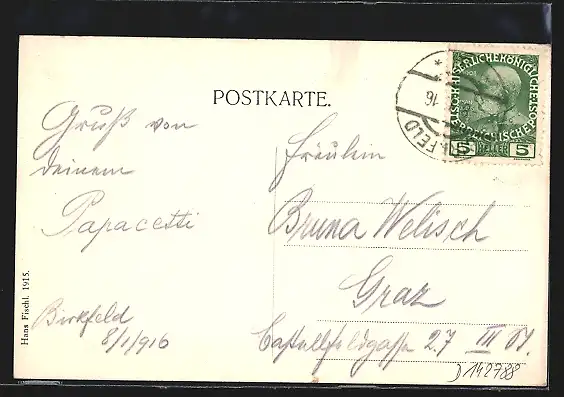 POSTKARTE.
Gruß von
deinem
Papacetti
Birkfeld
8/1/916
Fräulein
Bruna Welisch
Graz
Castellfeldgasse 27 III St.
Hans Fischl, 1915.
KAISERLICHEKÖNIGLICHE
5 HELLER 5
FELD
16
142788